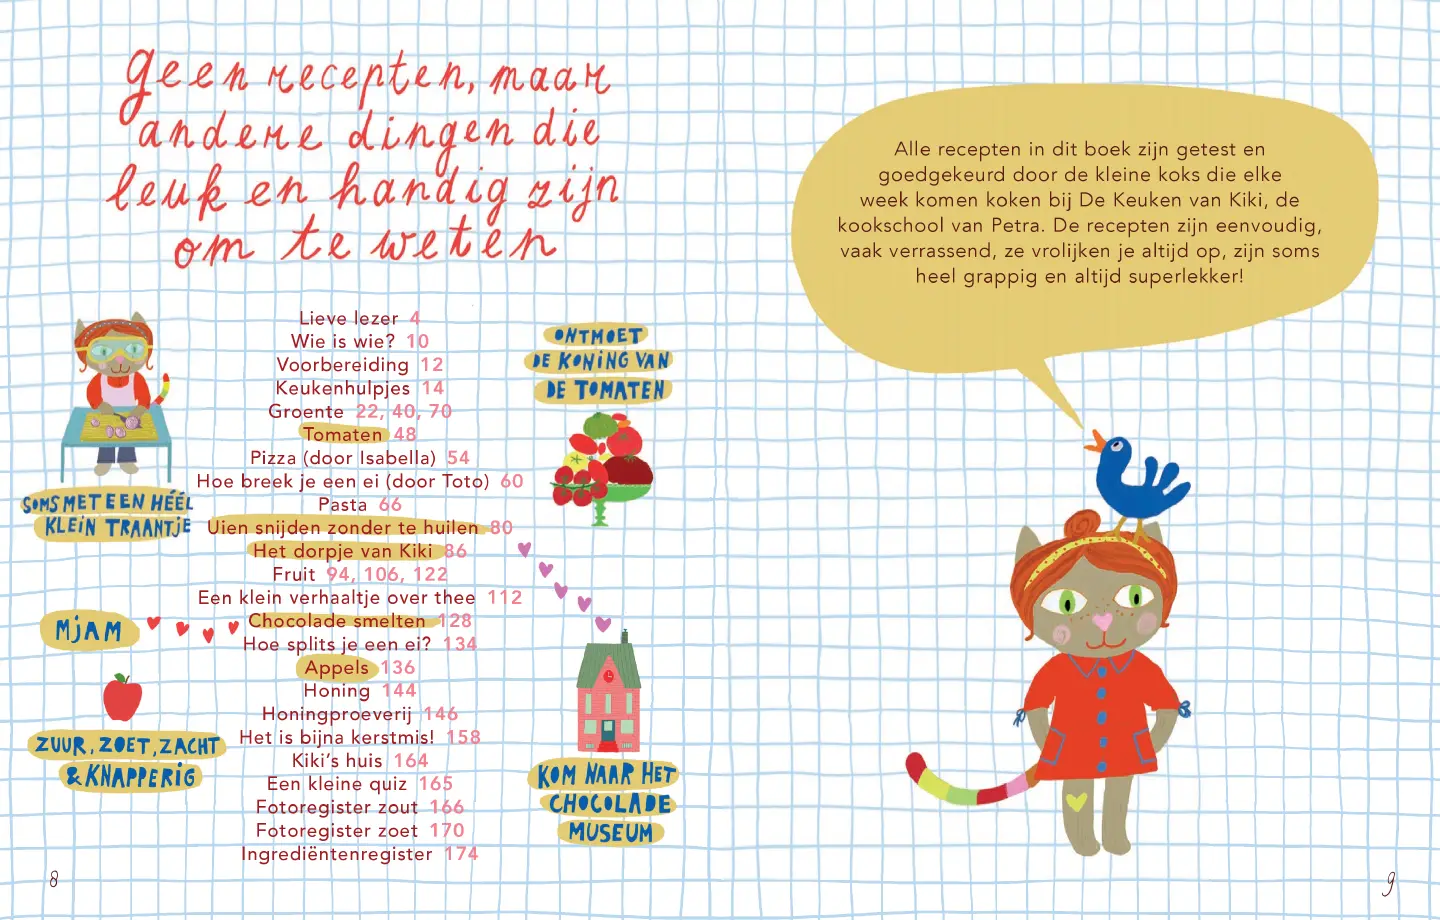 geen recepten, maar
andere dingen die
leuk en handig zijn
om te weten
Lieve lezer 4
Wie is wie? 10
Voorbereiding 12
Keukenhulpjes 14
Groente 22, 40, 70
Tomaten 48
Pizza (door Isabella) 54
Hoe breek je een ei (door Toto) 60
Pasta 66
Uien snijden zonder te huilen 80
Het dorpje van Kiki 86
Fruit 94, 106, 122
Een klein verhaaltje over thee 112
Chocolade smelten 128
Hoe splits je een ei? 134
Appels 136
Honing 144
Honingproeverij 146
Het is bijna kerstmis! 158
Kiki's huis 164
Een kleine quiz 165
Fotoregister zout 166
Fotoregister zoet 170
Ingrediëntenregister 174
SOMS MET EEN HÉÉL
KLEIN TRAANTJE
MJAM
ZUUR, ZOET, ZACHT
& KNAPPERIG
ONTMOET
DE KONING VAN
DE TOMATEN
KOM NAAR HET
CHOCOLADE
MUSEUM
8
Alle recepten in dit boek zijn getest en
goedgekeurd door de kleine koks die elke
week komen koken bij De Keuken van Kiki, de
kookschool van Petra. De recepten zijn eenvoudig,
vaak verrassend, ze vrolijken je altijd op, zijn soms
heel grappig en altijd superlekker!
9